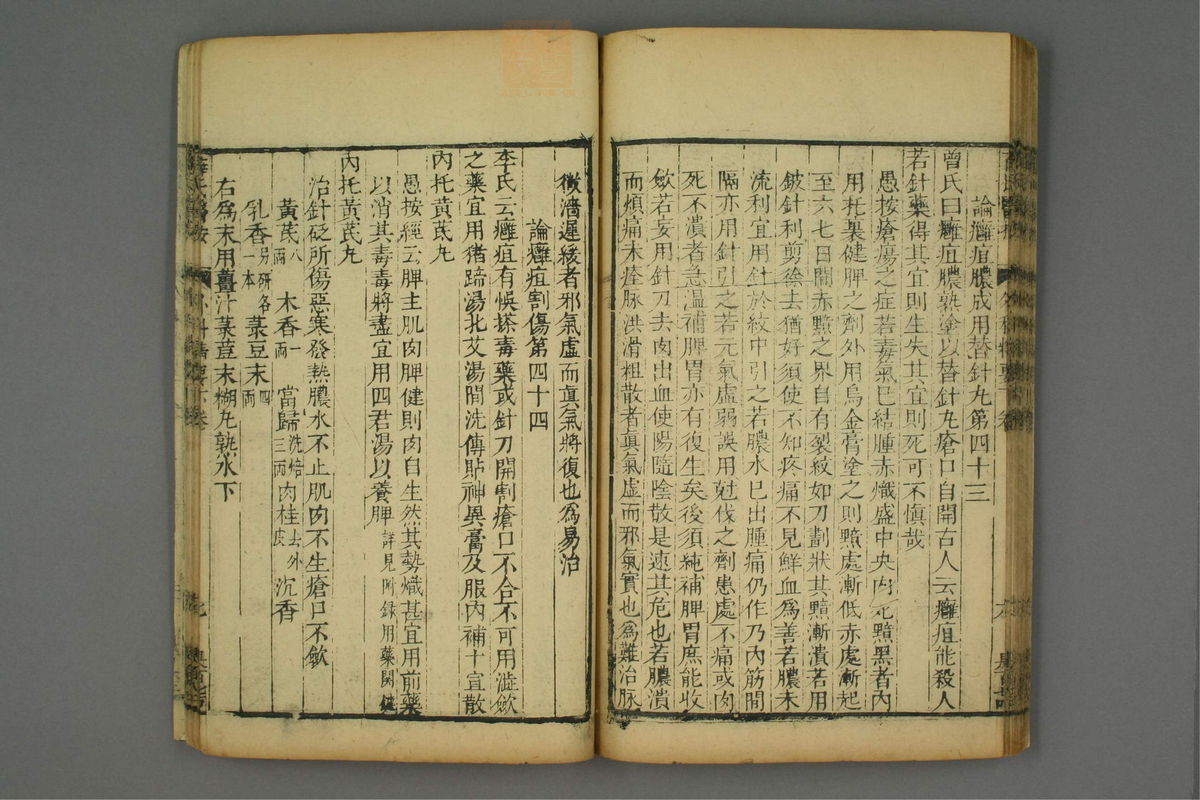 論癰疽膿成用替針丸第四十三
曾氏曰癰疽膿熟塗以替針丸瘡口自開古人云癰疽能殺人
若針藥得其宜則生失其宜則死可不慎哉
愚按瘡瘍之症若毒氣已結腫赤熾盛中央肉死黯黑者內
用托裏健脾之劑外用烏金膏塗之則黯處漸低赤處漸起
至六七日間赤黯之界自有裂紋如刀劃狀其黯漸潰若用
鈹針利剪徐去猶好須使不知疼痛不見鮮血爲善若膿未
流利宜用針於紋中引之若膿水已出腫痛仍作乃內筋間
隔亦用針引之若元氣虛弱誤用尅伐之劑患處不痛或肉
死不潰者急溫補脾胃亦有復生矣後須純補脾胃庶能收
歛若妄用針刀去肉出血使陽隨陰散是速其危也若膿潰
而煩痛未痊脉洪滑粗散者眞氣虛而邪氣實也爲難治脉
微濇遲緩者邪氣虛而眞氣將復也爲易治
論癰疽割傷第四十四
李氏云癰疽有悞搽毒藥或針刀開割瘡口不合不可用澁歛
之藥宜用猪蹄湯北艾湯間洗傳貼神異膏及服內補十宣散
內托黃芪丸
愚按經云脾主肌肉脾健則肉自生然其勢熾甚宜用前藥
以消其毒毒將盡宜用四君湯以養脾詳見附録用藥関鍵
內托黃芪丸
治針砭所傷惡寒發熱膿水不止肌肉不生瘡口不歛
黃芪八兩 木香一兩 當歸洗焙三兩 肉桂去外皮 沉香
乳香另研各一本 菉豆末四兩
右爲末用薑汁菉荳末糊丸熟水下